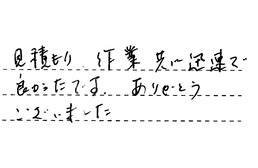 見積もり 作業 共に迅速で
良かったです。ありがとう
ございました